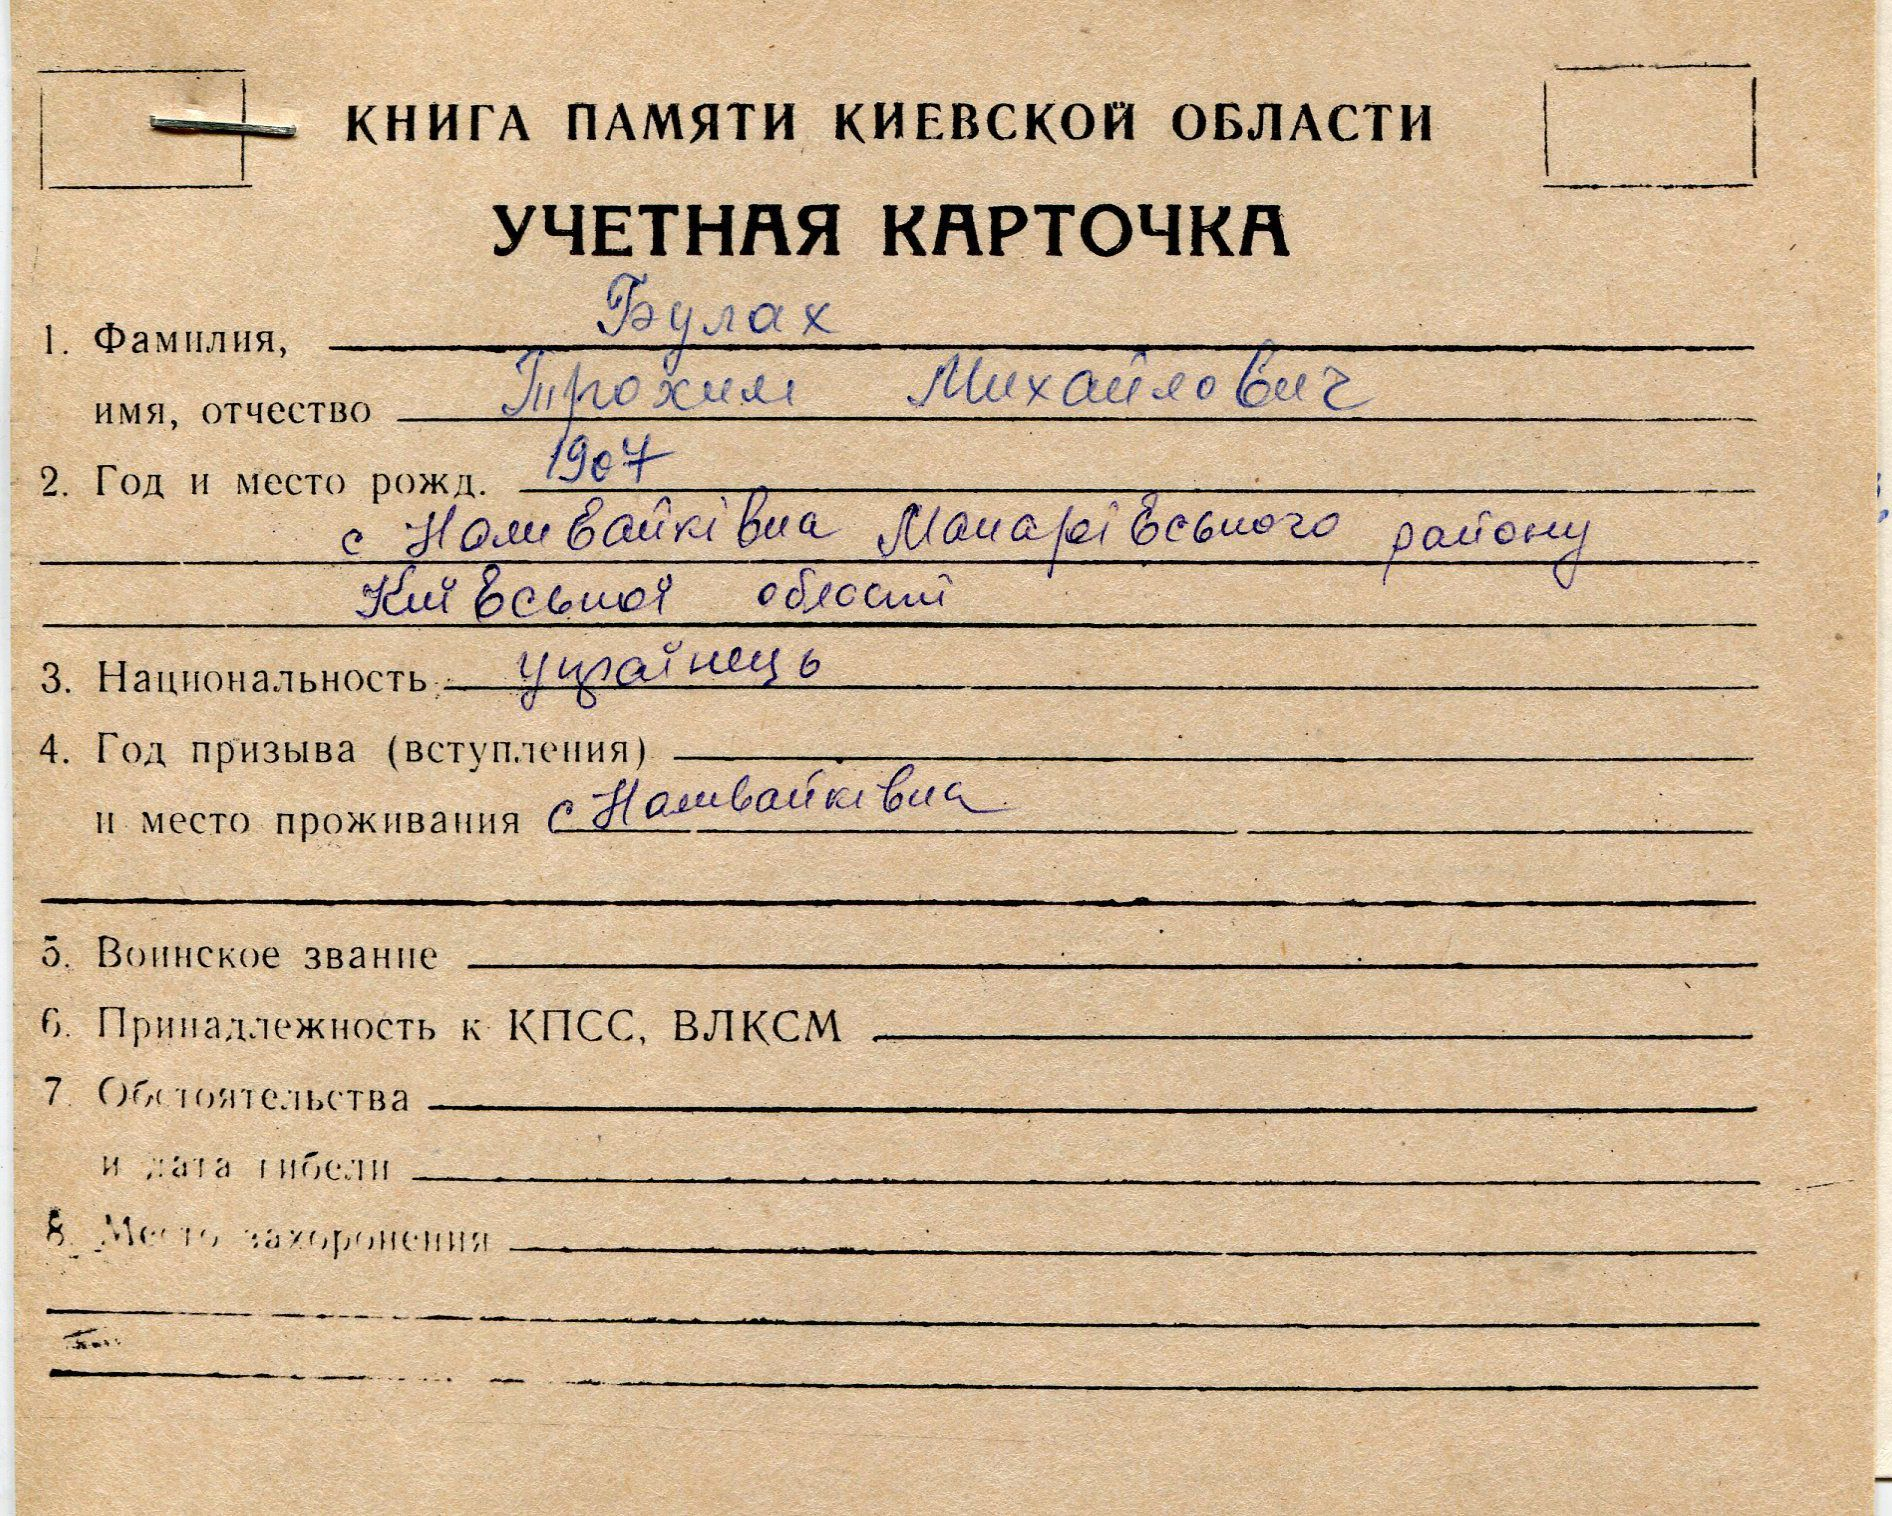 КНИГА ПАМЯТИ КИЕВСКОЙ ОБЛАСТИ
УЧЕТНАЯ КАРТОЧКА
1. Фамилия, Булах
имя, отчество Трохим Михайлович
2. Год и место рожд. 1907
с Наливайківка Макарівського району
Київської області
3. Национальность українець
4. Год призыва (вступления)
и место проживания с Наливайківка
5. Воинское звание
6. Принадлежность к КПСС, ВЛКСМ
7. Обстоятельства
и дата гибели
8. Место захоронения